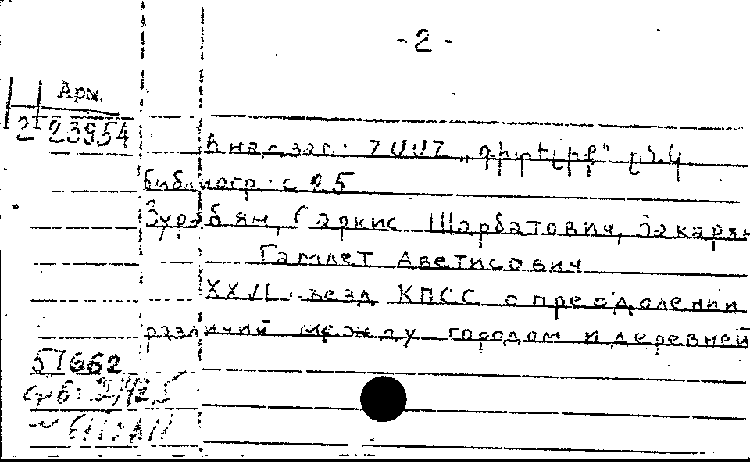 - 2 -
Арм.
2-23954
В надзаг.: ՀՍՍՀ „Գիտելիք“ ընկ.
Библиогр. с 25
Зурабян, Саркис Шарбатович, Закарян
Гамлет Аветисович
XXVI съезд КПСС о преодолении
различий между городом и деревней
51662